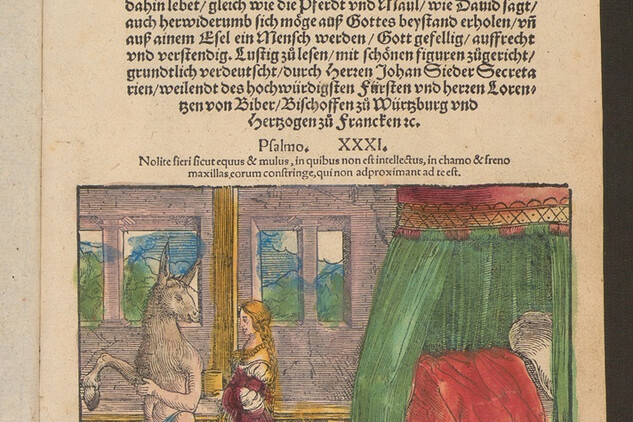 dahin lebet/ gleich wie die Pferdt vnd Maul/ wie Dauid sagt/
auch herwiderumb sich möge auß Gottes beystand erholen/ vñ
auß ainem Esel ein Mensch werden/ Gott gefellig/ auffrecht
vnd verstendig. Lustig zů lesen/ mit schönen figuren zůgericht/
grundtlich verdeutscht/ durch Herzen Johan Sieder Secreta
rien/ weilendt des hochwürdigsten Fürsten vnd herzen Loren⸗
tzen von Biber/ Bischoffen zů Würtzburg vnd
Hertzogen zů Francken ꝛc.
Psalmo. XXXI.
Nolite fieri sicut equus & mulus, in quibus non est intellectus, in chamo & freno
maxillas eorum constringe, qui non adproximant ad te est.